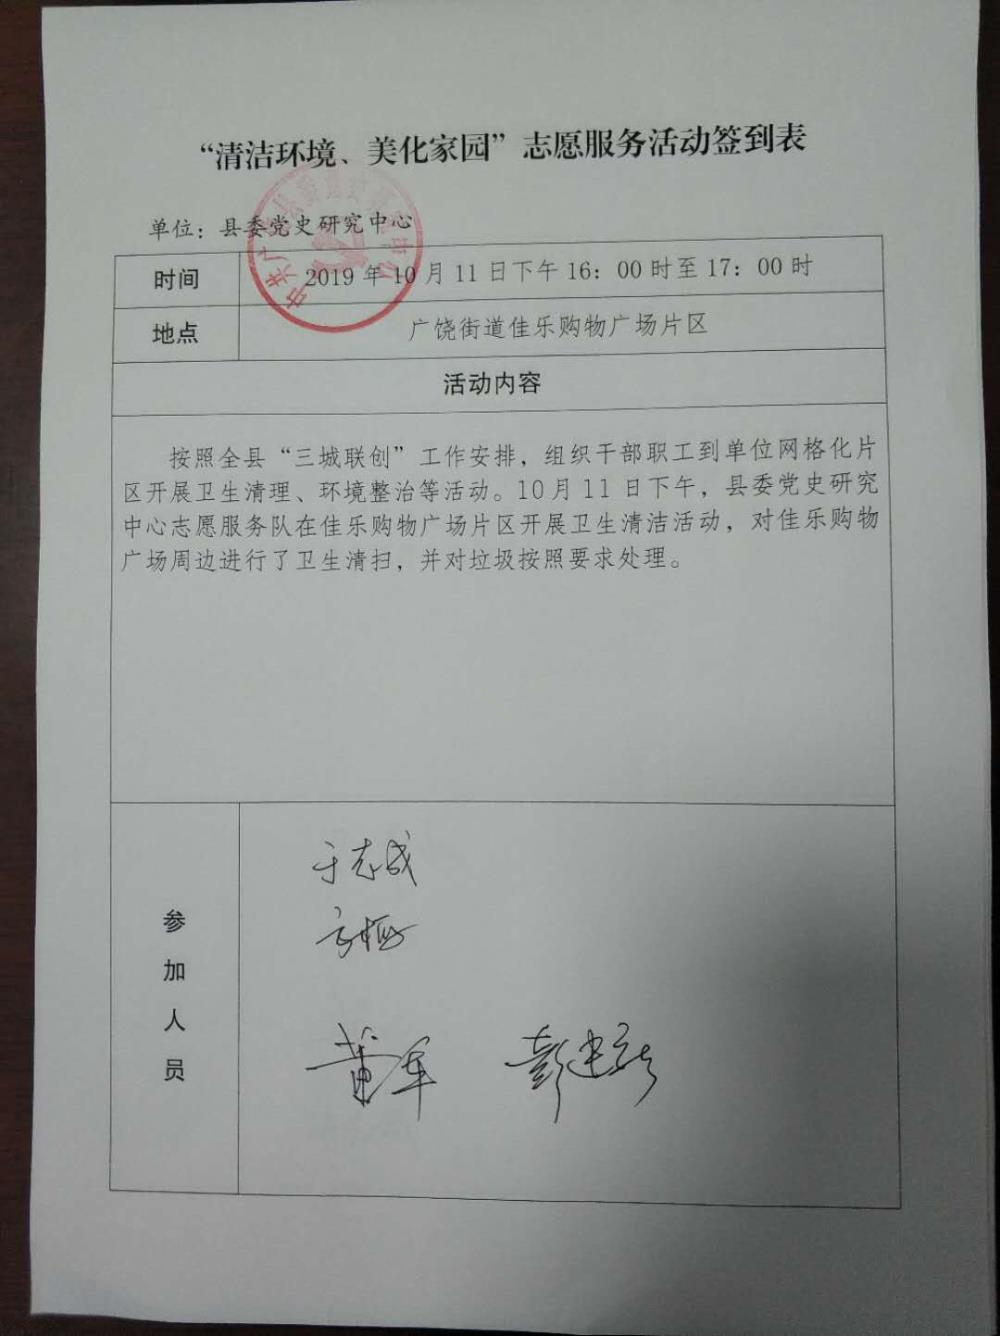 “清洁环境、美化家园”志愿服务活动签到表
单位：县委党史研究中心
时间 2019年10月11日下午16：00时至17：00时
地点 广饶街道佳乐购物广场片区
活动内容
按照全县“三城联创”工作安排，组织干部职工到单位网格化片
区开展卫生清理、环境整治等活动。10月11日下午，县委党史研究
中心志愿服务队在佳乐购物广场片区开展卫生清洁活动，对佳乐购物
广场周边进行了卫生清扫，并对垃圾按照要求处理。
参加人员
于志成